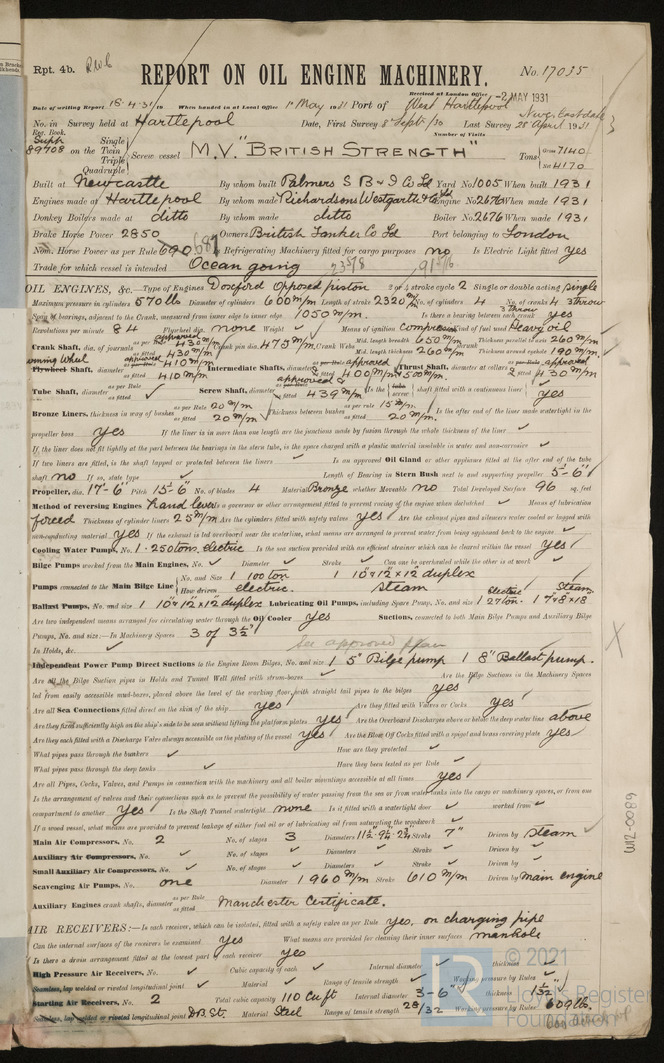 Rpt. 4b.
REPORT ON OIL ENGINE MACHINERY.
No. 17035
Received at London Office 2 MAY 1931
Date of writing Report 18.4.31 When handed in at Local Office 1st May 1931 Port of West Hartlepool
No. in Survey held at Hartlepool Date, First Survey 8th Sept/30 Last Survey 28th April 1931
Reg. Book. Number of Visits
Supp 89708 on the Single Twin Triple Quadruple Screw vessel M.V. "BRITISH STRENGTH" Tons Gross 7140 Net 4170
Built at Newcastle By whom built Palmers S B & I Co Ld Yard No 1005 When built 1931
Engines made at Hartlepool By whom made Richardsons Westgarth & Co Ld Engine No 2676 When made 1931
Donkey Boilers made at ditto By whom made ditto Boiler No 2676 When made 1931
Brake Horse Power 2850 Owners British Tanker Co Ld Port belonging to London
Nom. Horse Power as per Rule 690 687 Is Refrigerating Machinery fitted for cargo purposes no Is Electric Light fitted yes
Trade for which vessel is intended Ocean going
OIL ENGINES, &c.—Type of Engines Doxford Opposed piston 2 or 4 stroke cycle 2 Single or double acting single
Maximum pressure in cylinders 570 lbs Diameter of cylinders 600 m/m Length of stroke 2320 m/m No. of cylinders 4 No. of cranks 4 3 throw
Span of bearings, adjacent to the Crank, measured from inner edge to inner edge 1050 m/m Is there a bearing between each 3 throw crank yes
Revolutions per minute 84 Flywheel dia. none Weight Means of ignition compression Kind of fuel used Heavy oil
Crank Shaft, dia. of journals as per Rule approved 430 m/m as fitted 430 m/m Crank pin dia. 475 m/m Crank Webs Mid. length breadth 650 m/m Mid. length thickness 260 m/m Thickness parallel to axis 260 m/m Thickness around eyehole 190 m/m
Turning Wheel Flywheel Shaft, diameter as per Rule approved 410 m/m as fitted 410 m/m Intermediate Shafts, diameter as per Rule approved as fitted 400 m/m Thrust Shaft, diameter at collars as per Rule approved as fitted 430 m/m
Tube Shaft, diameter as per Rule as fitted Screw Shaft, diameter as per Rule approved as fitted 439 m/m Is the tube screw shaft fitted with a continuous liner yes
Bronze Liners, thickness in way of bushes as per Rule 20 m/m as fitted 20 m/m Thickness between bushes as per rule 15 m/m as fitted 20 m/m Is the after end of the liner made watertight in the
propeller boss yes If the liner is in more than one length are the junctions made by fusion through the whole thickness of the liner
If the liner does not fit tightly at the part between the bearings in the stern tube, is the space charged with a plastic material insoluble in water and non-corrosive
If two liners are fitted, is the shaft lapped or protected between the liners Is an approved Oil Gland or other appliance fitted at the after end of the tube
shaft no If so, state type Length of Bearing in Stern Bush next to and supporting propeller 5'-6"
Propeller, dia. 17'-6" Pitch 15'-6" No. of blades 4 Material Bronze whether Moveable no Total Developed Surface 96 sq. feet
Method of reversing Engines hand lever Is a governor or other arrangement fitted to prevent racing of the engine when declutched Means of lubrication
forced Thickness of cylinder liners 25 m/m Are the cylinders fitted with safety valves yes Are the exhaust pipes and silencers water cooled or lagged with
non-conducting material yes If the exhaust is led overboard near the waterline, what means are arranged to prevent water from being syphoned back to the engine
Cooling Water Pumps, No. 1-250 ton electric Is the sea suction provided with an efficient strainer which can be cleared within the vessel yes
Bilge Pumps worked from the Main Engines, No. Diameter Stroke Can one be overhauled while the other is at work
Pumps connected to the Main Bilge Line No. and Size 1 100 ton 1 10"x12"x12" duplex
How driven electric. steam
Ballast Pumps, No. and size 1 10"x12"x12" duplex Lubricating Oil Pumps, including Spare Pump, No. and size 1 Electric 27 ton. 1 Steam 7"x8"x18
Are two independent means arranged for circulating water through the Oil Cooler yes Suctions, connected to both Main Bilge Pumps and Auxiliary Bilge
Pumps, No. and size:—In Machinery Spaces 3 of 3½"
In Holds, &c. See approved plan
Independent Power Pump Direct Suctions to the Engine Room Bilges, No. and size 1 5" Bilge pump 1 8" Ballast pump.
Are all the Bilge Suction pipes in Holds and Tunnel Well fitted with strum-boxes Are the Bilge Suctions in the Machinery Spaces
led from easily accessible mud-boxes, placed above the level of the working floor, with straight tail pipes to the bilges yes
Are all Sea Connections fitted direct on the skin of the ship yes Are they fitted with Valves or Cocks yes
Are they fixed sufficiently high on the ship's side to be seen without lifting the platform plates yes Are the Overboard Discharges above or below the deep water line above
Are they each fitted with a Discharge Valve always accessible on the plating of the vessel yes Are the Blow Off Cocks fitted with a spigot and brass covering plate yes
What pipes pass through the bunkers How are they protected
What pipes pass through the deep tanks Have they been tested as per Rule
Are all Pipes, Cocks, Valves, and Pumps in connection with the machinery and all boiler mountings accessible at all times yes
Is the arrangement of valves and their connections such as to prevent the possibility of water passing from the sea or from water tanks into the cargo or machinery spaces, or from one
compartment to another yes Is the Shaft Tunnel watertight none Is it fitted with a watertight door worked from
If a wood vessel, what means are provided to prevent leakage of either fuel oil or of lubricating oil from saturating the woodwork
Main Air Compressors, No. 2 No. of stages 3 Diameters 11½-9¼-2¾ Stroke 7" Driven by steam
Auxiliary Air Compressors, No. No. of stages Diameters Stroke Driven by
Small Auxiliary Air Compressors, No. No. of stages Diameters Stroke Driven by
Scavenging Air Pumps, No. one Diameter 1960 m/m Stroke 610 m/m Driven by main engine
Auxiliary Engines crank shafts, diameter as per Rule as fitted Manchester Certificate.
AIR RECEIVERS:—Is each receiver, which can be isolated, fitted with a safety valve as per Rule yes, on charging pipe
Can the internal surfaces of the receivers be examined yes What means are provided for cleaning their inner surfaces manhole
Is there a drain arrangement fitted at the lowest part of each receiver yes
High Pressure Air Receivers, No. Cubic capacity of each Internal diameter thickness
Seamless, lap welded or riveted longitudinal joint Material Range of tensile strength Working pressure by Rules
Starting Air Receivers, No. 2 Total cubic capacity 110 Cu ft Internal diameter 3'-6" thickness 1 1/32"
Seamless, lap welded or riveted longitudinal joint D.B.St. Material Steel Range of tensile strength 28/32 Working pressure by Rules 609 lbs.
W12-0089
© 2021
Lloyd's Register
Foundation